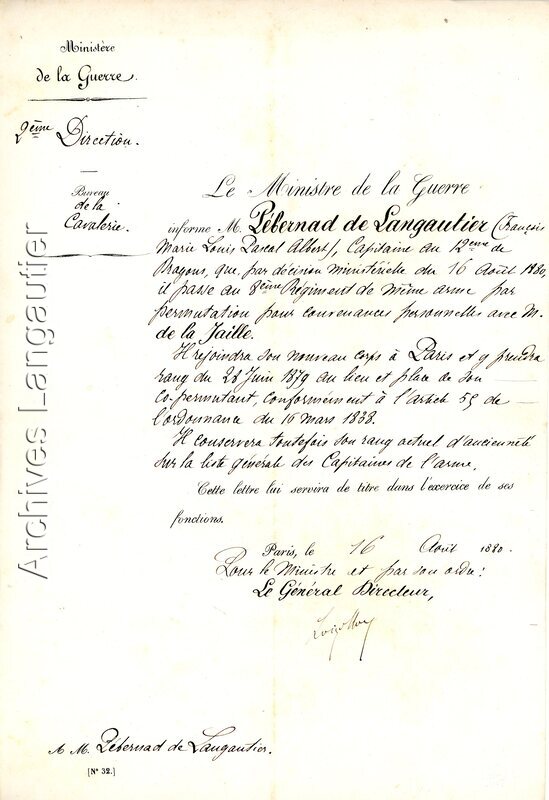 Ministère
de la Guerre.
2ème Direction.
Bureau
de la
Cavalerie.
Le Ministre de la Guerre
informe M. Pébernad de Langautier (François
Marie Louis Pascal Albert), Capitaine au 19ème de
Dragons, que, par décision ministérielle du 16 Août 1880,
il passe au 8ème Régiment de même arme par
permutation pour convenances personnelles avec M.
de la Jaille.
Il rejoindra son nouveau corps à Paris et y prendra
rang du 28 Juin 1879 au lieu et place de son
co-permutant, conformément à l'article 55 de
l'ordonnance du 16 Mars 1838.
Il conservera toutefois son rang actuel d'ancienneté
sur la liste générale des Capitaines de l'arme.
Cette lettre lui servira de titre dans l'exercice de ses
fonctions.
Paris, le 16 Août 1880.
Pour le Ministre et par son ordre:
Le Général Directeur,
A M. Pébernad de Langautier.
[N° 32.]
Archives Langautier